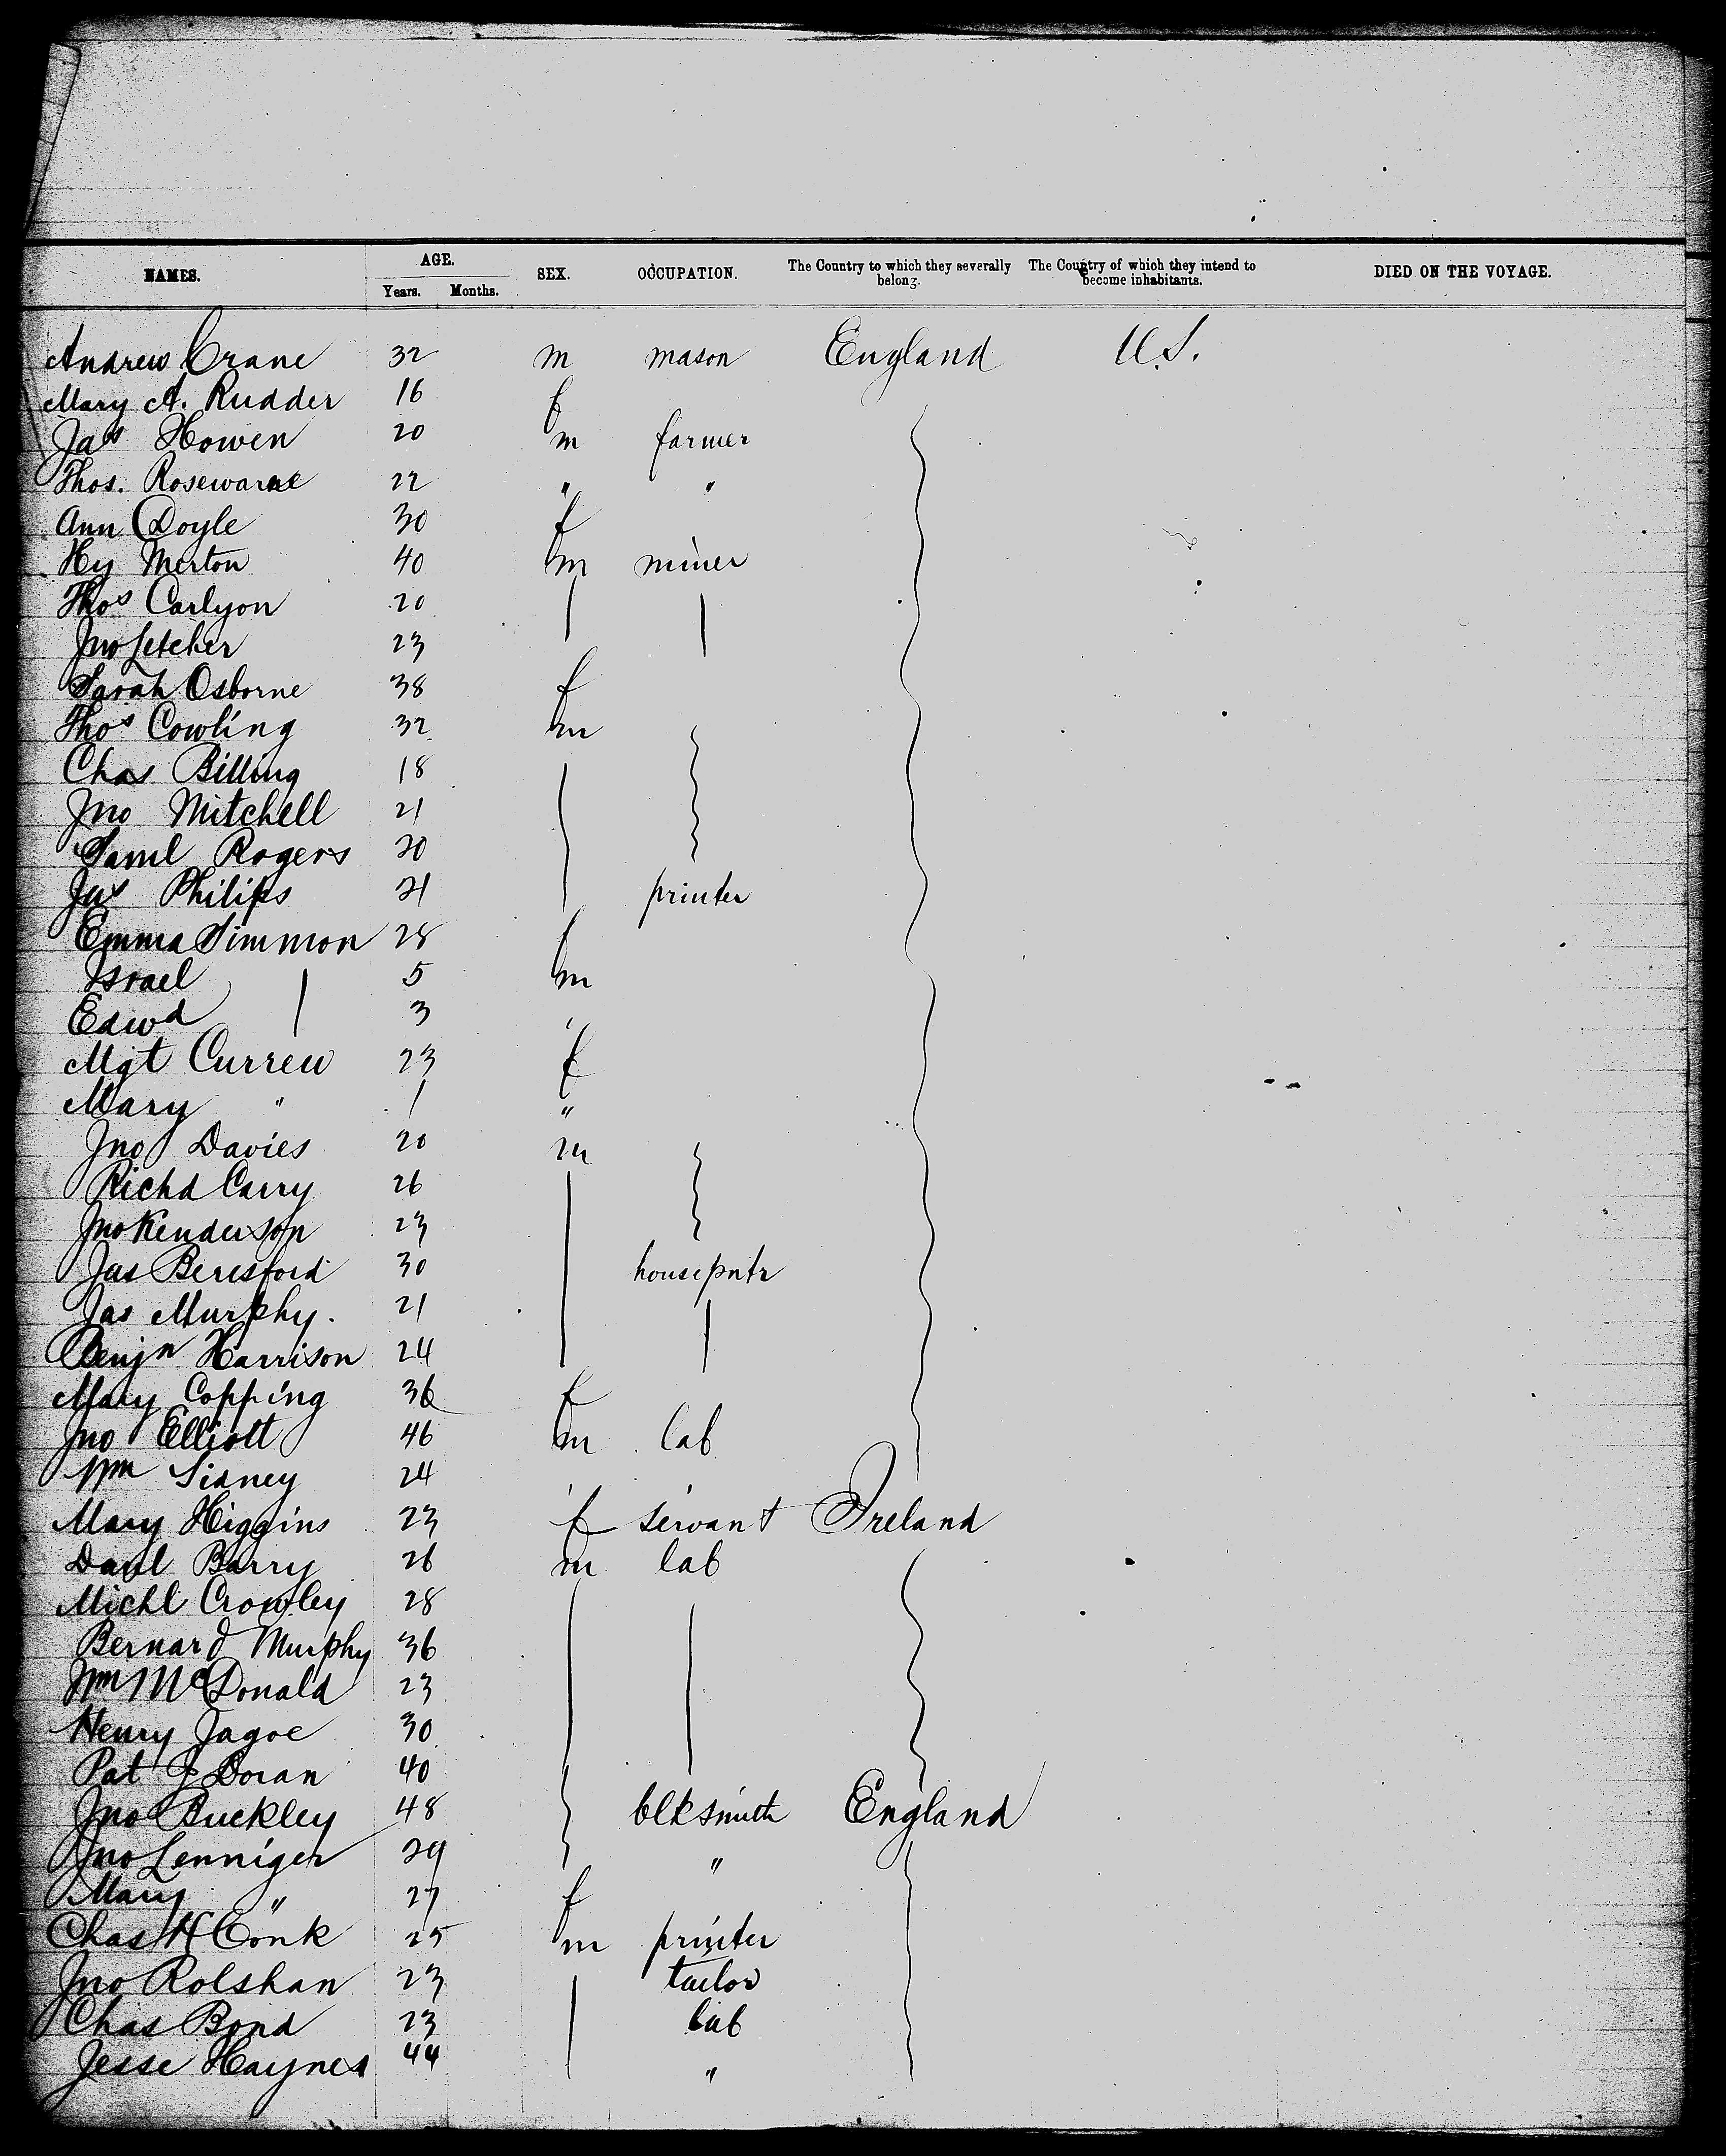 NAMES. AGE. SEX. OCCUPATION. The Country to which they severally belong. The Country of which they intend to become inhabitants. DIED ON THE VOYAGE.
Years. Months.
Andrew Crane 32 m mason England U.S.
Mary A. Rudder 16 f
Jas Howen 20 m farmer
Thos. Rosewarne 22 " "
Ann Doyle 30 f
Hy Merton 40 m miner
Thos Carlyon 20
Jno Letcher 23
Sarah Osborne 38 f
Thos Cowling 32 m
Chas Billing 18
Jno Mitchell 21
Saml Rogers 20
Jas Philips 21 printer
Emma Simmon 28 f
Israel 5 m
Edwd 3
Mgt Curren 23 f
Mary " 1 "
Jno Davies 20 m
Richd Carry 26
Jno Kenderson 23
Jas Beresford 30 housepntr
Jas Murphy. 21
Benjn Harrison 24
Mary Copping 36 f
Jno Elliott 46 m lab
Wm Sidney 24
Mary Higgins 23 f servant Ireland
Danl Barry 26 m lab
Michl Crowley 28
Bernard Murphy 36
Wm McDonald 23
Henry Jagoe 30
Pat J Doran 40
Jno Buckley 48 blksmith England
Jno Lenniger 29 "
Mary " 27 f
Chas H Conk 25 m printer
Jno Rolshan 23 tailor
Chas Bond 23 lab
Jesse Haynes 44 "